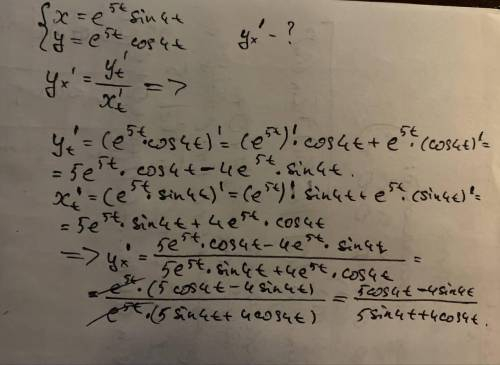 {x = e^5t sin4t
{y = e^5t cos4t    y'ₓ - ?
y'ₓ = y't / x't =>
y't = (e^5t · cos4t)' = (e^5t)' · cos4t + e^5t · (cos4t)' =
= 5e^5t · cos4t - 4e^5t · sin4t.
x't = (e^5t · sin4t)' = (e^5t)' · sin4t + e^5t · (sin4t)' =
= 5e^5t · sin4t + 4e^5t · cos4t
=> y'ₓ = (5e^5t · cos4t - 4e^5t · sin4t) / (5e^5t · sin4t + 4e^5t · cos4t) =
= e^5t · (5cos4t - 4sin4t) / e^5t · (5sin4t + 4cos4t) = (5cos4t - 4sin4t) / (5sin4t + 4cos4t).